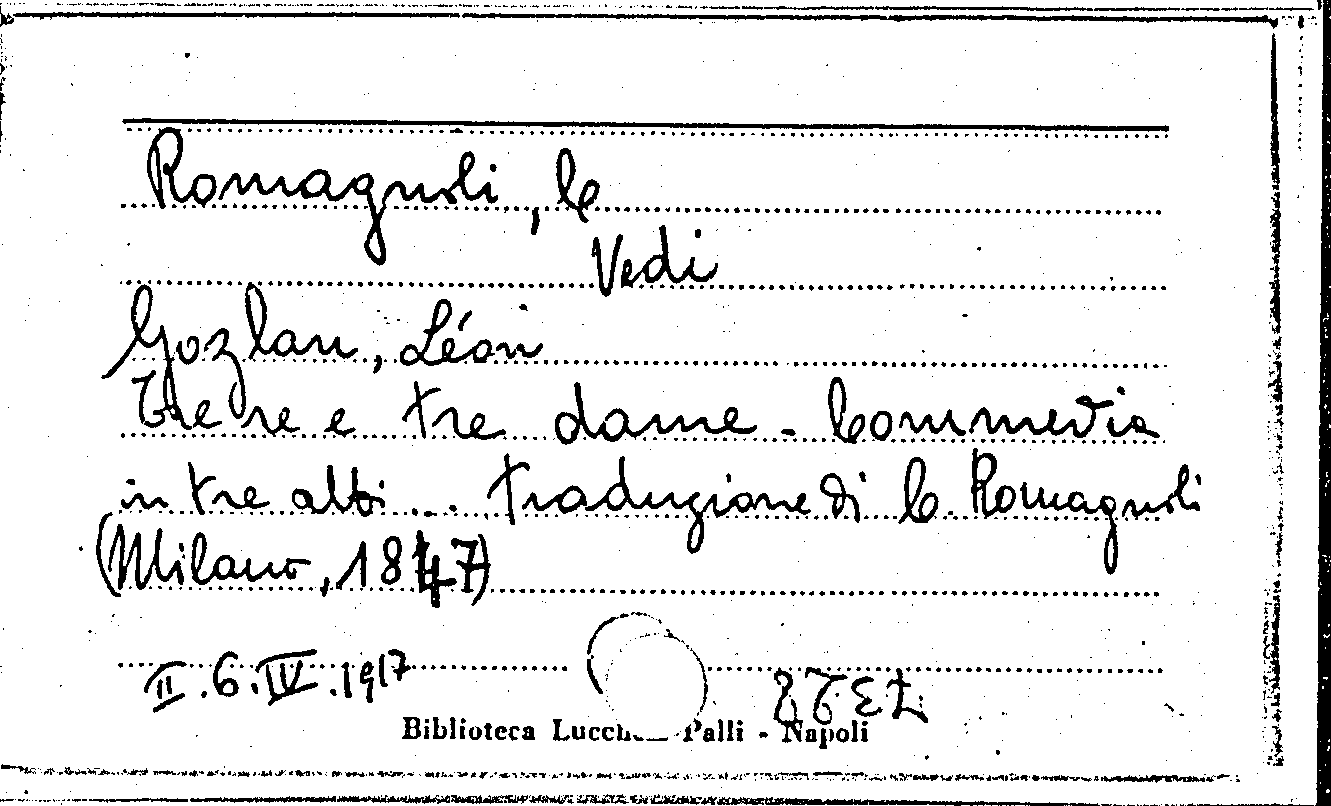 Romagnoli, C
Vedi
Gozlan, Léon
Tre re e tre dame - Commedia
in tre atti ... traduzione di C. Romagnoli
(Milano, 1847)
II.6.IV.1917
Biblioteca Lucchesi Palli - Napoli